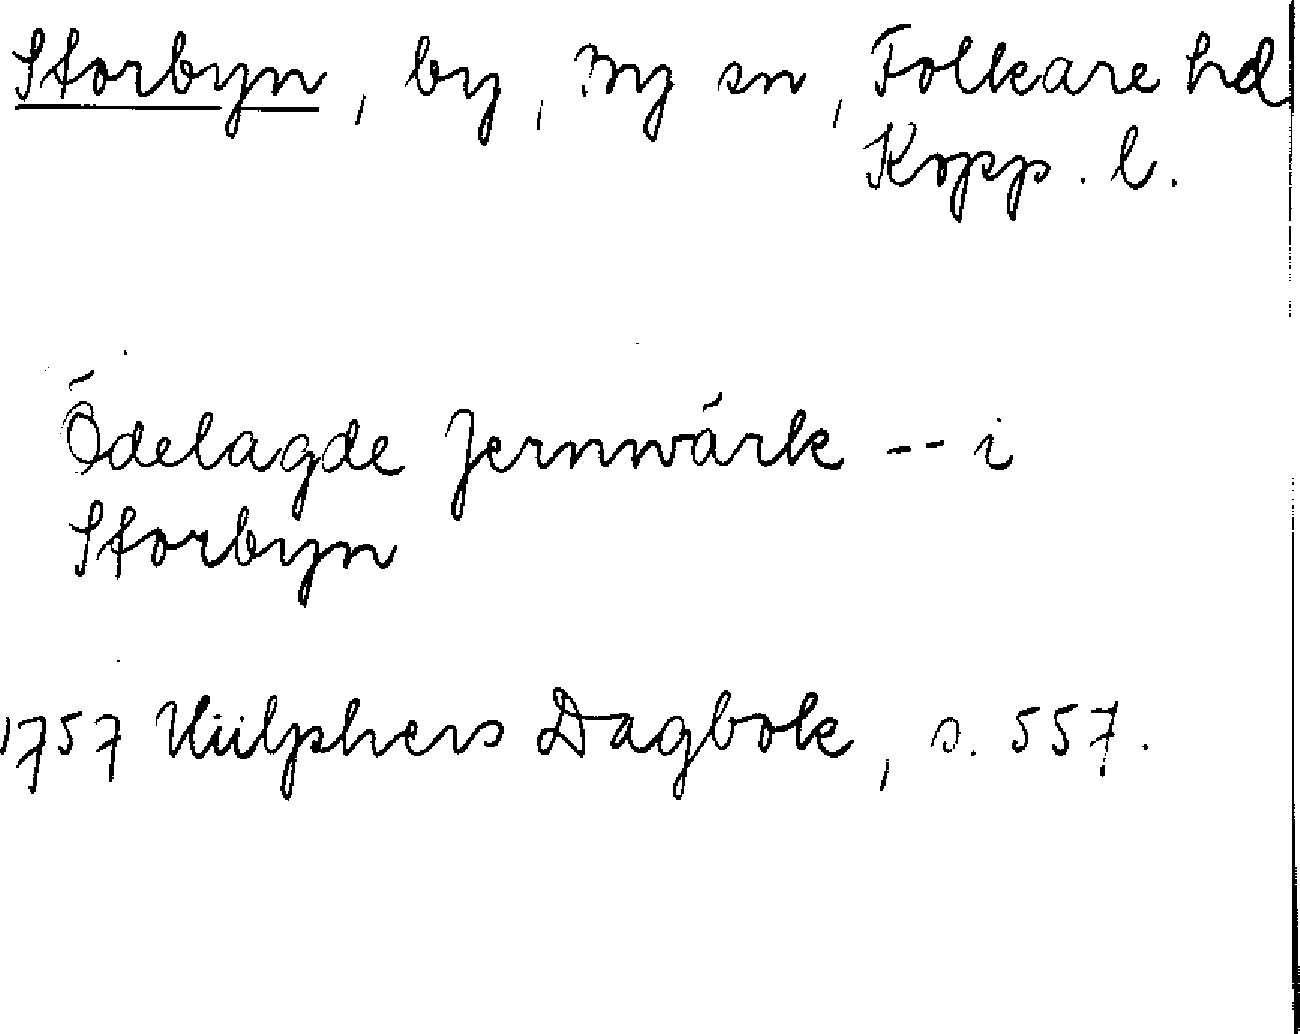 Storbyn, by, By sn, Folkare hd
Kopp. l.
Ödelagde Jernwärk -- i
Storbyn
1757 Hülphers Dagbok, s. 557.